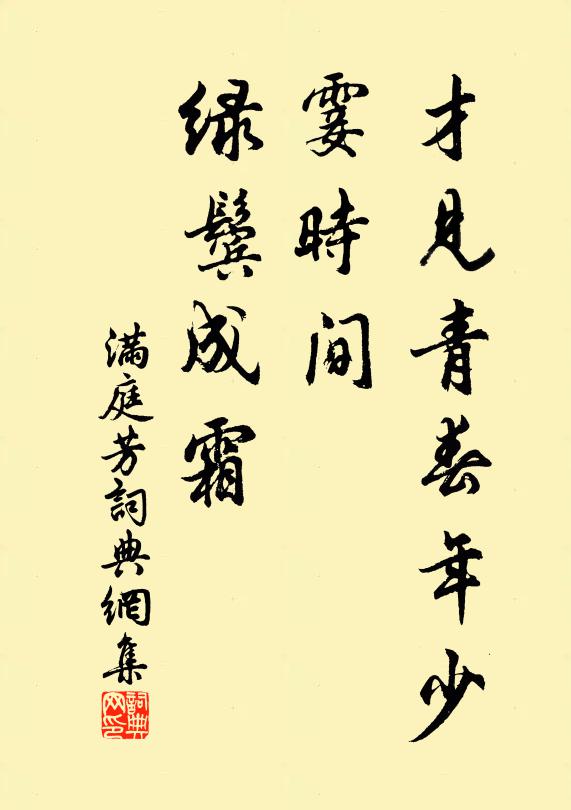 才見青春年少
霎時間
綠鬢成霜
滿庭芳詞典網集
詞典网印